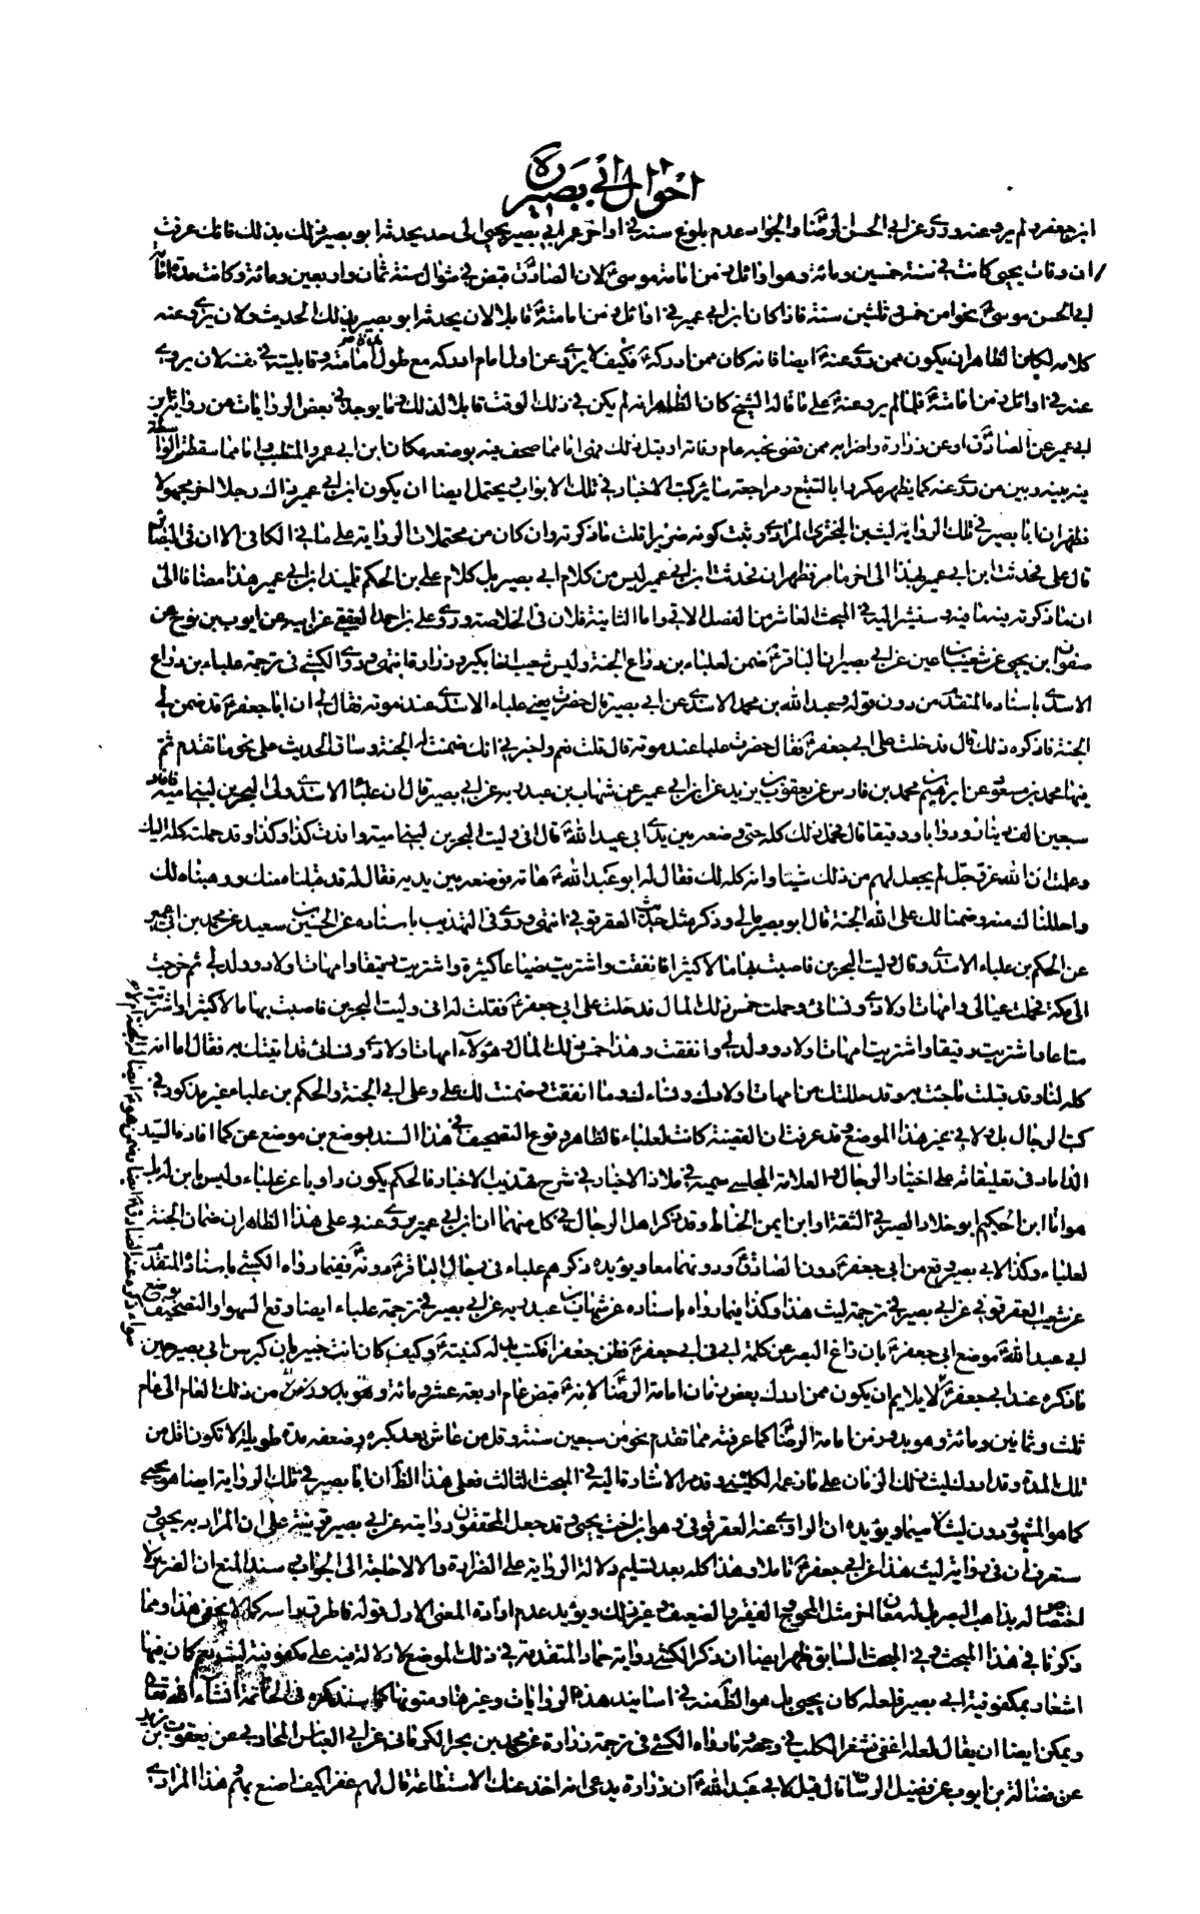 احوال ابي بصير
ابن جعفر ولم يرو عنه وروى عن ابي الحسن الرضا والجواد عدم بلوغ سنه في اواخر عمر ابي بصير يحيى الى حد يحدثه ابو بصير فذلك بذلك فانك عرفت
ان وفات يحيى كانت في سنة خمسين ومائة وهو اوائل زمن امامة موسى لان الصادق قبض في شوال سنة ثمان واربعين ومائة وكانت مدة امامة
ابي الحسن موسى نحوا من خمس وثلثين سنة فاذا كان ابن ابي عمير في اوائل زمن امامته قابلا لان يحدثه ابو بصير بذلك الحديث ولان يروى عنه
كلامه لكان الظاهر ان يكون ممن روى عنه ايضا فانه كان ممن ادركه فكيف لا يروى عن اول امام ادركه مع طول امامته وقابليته في نفسه لان يروى
عنه في اوائل زمن امامته فلما لم يرو عنه على ما قاله الشيخ كان الظاهر انه لم يكن في ذلك الوقت قابلا لذلك فما يوجد في بعض الروايات من رواية ابن
ابي عمير عن الصادق او عن زرارة واضرابه ممن قضى نحبه عام وفاته او قبل ذلك فهي اما مما صحف فيه بوضعه مكان ابن ابي عمر المتطبب واما مما سقطت الواسطة
فيه بينه وبين من روى عنه كما يظهر مكررها بالتتبع ومراجعة سائر كتب الاخبار في تلك الابواب ويحتمل ايضا ان يكون ابن ابي عمير ذاك رجلا اخر مجهولا
فظهر ان ابا بصير في تلك الرواية ليث بن البختري المرادي وثبت كونه ضريرا قلت ما ذكرته وان كان من محتملات الرواية على ما في الكافي الا ان في البصائر
قال علي فحدثت ابن ابي عمير بهذا الى اخر ما مر فظهر ان فحدثت ابن ابي عمير ليس من كلام ابي بصير بل كلام علي بن الحكم تلميذ ابن ابي عمير هذا مضافا الى
ان ما ذكرته فيه ما فيه وسنشير اليه في المبحث العاشر من الفصل الاتي واما الثانية فلان في الخلاصة وروى علي بن احمد العقيقي عن ابيه عن ايوب بن نوح عن
صفوان بن يحيى عن شعيب بن اعين عن ابي بصير ان الباقر ضمن لعلباء بن دراع الجنة وليس شعيب الا بكير وزرارة انتهى وروى الكشي في ترجمة علباء بن دراع
الاسدي باسناده المتقدم من دون قوله وعبد الله بن محمد الاسدي عن ابي بصير قال حضرت يعني علباء الاسدي عند موته فقال لي ان ابا جعفر قد ضمن لي
الجنة فاذكره ذلك قال فدخلت على ابي جعفر فقال حضرت علباء عند موته قال قلت نعم واخبرني انك ضمنت له الجنة وساق الحديث على نحو ما تقدم ثم
فيها محمد بن مسعود عن ابراهيم بن محمد بن فارس عن يعقوب بن يزيد عن ابن ابي عمير عن شهاب بن عبد ربه عن ابي بصير قال ان علباء الاسدي ولى البحرين لبني امية فافاد
سبعين الف دينار ودوابا ورقيقا قال فحمل ذلك كله حتى وضعه بين يدي ابي عبد الله قال اني وليت البحرين لبني امية وافدت كذا وكذا وقد حملت كله اليك
وعلمت ان الله عز وجل لم يجعل لهم من ذلك شيئا وانه كله لك فقال له ابو عبد الله هاته فوضعه بين يديه فقال له قد قبلنا منك ووهبناه لك
واحللناك منه وضمنا لك على الله الجنة قال ابو بصير مالي وذكر مثل حديث العقرقوفي انتهى وروى في التهذيب باسناده عن الحسين بن سعيد عن محمد بن ابي عمير
عن الحكم بن علباء الاسدي وقال وليت البحرين فاصبت بها مالا كثيرا فانفقت واشتريت ضياعا كثيرة واشتريت رقيقا وامهات اولاد وولد لي ثم خرجت
الى مكة فحملت عيالي وامهات اولادي ونسائي وحملت خمس ذلك المال فدخلت على ابي جعفر فقلت له اني وليت البحرين فاصبت بها مالا كثيرا واشتريت
متاعا واشتريت رقيقا واشتريت امهات اولاد وولد لي وانفقت وهذا خمس ذلك المال وهؤلاء امهات اولادي ونسائي قد اتيتك به فقال اما انه
كله لنا وقد قبلت ما جئت به وقد حللتك من امهات اولادك ونساءك وما انفقت وضمنت لك علي وعلى ابي الجنة والحكم بن علباء غير مذكور في
كتب الرجال بل ولا في غير هذا الموضع وقد عرفت ان القضية كانت لعلباء فالظاهر وقوع التصحيف في هذا السند بوضع بن موضع عن كما افاده السيد
الداماد في تعليقاته على اختيار الرجال والعلامة المجلسي سميه في ملاذ الاخيار في شرح تهذيب الاخبار فالحكم يكون راويا عن علباء وليس بابن له بل
هو اما ابن الحكيم ابو خلاد الصيرفي الثقة او ابن ايمن الخياط وقد ذكر اهل الرجال في كل منهما ان ابن ابي عمير يروى عنه وعلى هذا الظاهر ان ضمان الجنة
لعلباء وكذا لابي بصير وقع من ابي جعفر دون الصادق ودونهما معا ويؤيده ذكرهم علباء في رجال الباقر دونه فيما رواه الكشي باسناده المتقدم
عن شعيب العقرقوفي عن ابي بصير في ترجمة ليث هذا وكذا فيما رواه باسناده عن شهاب بن عبد ربه عن ابي بصير في ترجمة علباء ايضا وقع السهو او التصحيف بوضع
ابي عبد الله موضع ابي جعفر بان زاغ البصر عن كلمة ابي في ابي جعفر فظن جعفرا فكتب بدله كنيته وكيف كان انت خبير بان كبر سن ابي بصير حين
ما ذكره عند ابي جعفر لا يلايم ان يكون ممن ادرك بعض زمان امامة الرضا لانه قبض عام اربعة عشر ومائة وهو من ذلك العام الى عام
ثلث وثمانين ومائة وهو بدو زمن امامة الرضا كما عرفته مما تقدم نحو من سبعين سنة وقل من عاش بعد كبره وضعفه مدة طويلة لا تكون اقل من
تلك المدة وقد ادرك ليث ذلك الزمان على ما زعمه الكليني وقد مر الاشارة اليه في المبحث الثالث فعلى هذا الظ ان ابا بصير في تلك الرواية ايضا هو يحيى
كما هو المشهور دون ليث لا سيما ويؤيده ان الراوي عنه العقرقوفي وهو ابن اخت يحيى وقد جعل المحققون روايته عن ابي بصير قرينة على ان المراد به يحيى و
ستعرف ان في رواية ليث هذا عن ابي جعفر تاملا وهذا كله بعد تسليم دلالة الرواية على الضرارة والا لا حاجة الى الجواب وسند المنع ان الضرير لا
اختصاص له بذاهب البصر بل له معان اخر مثل المحوج والفقير والضعيف وغير ذلك ويؤيد عدم ارادة المعنى الاول قوله فاطرق براسه كما لا يخفى هذا ومما
ذكرنا في هذا المبحث وفي المبحث السابق ظهر ايضا ان ذكر الكشي رواية حماد المتقدمة في ذلك الموضع لا دلالة فيه على مكفوفية ليث نعم كان فيها
اشعار بمكفوفية ابي بصير فلعله كان يحيى بل هو الظ منه في اسانيد هذه الروايات وغيرها ومتونها كما سنذكره في الخاتمة انشاء الله تعالى
ويمكن ايضا ان يقال لعله اعني شغر الكلب في وجهه ما رواه الكشي في ترجمة زرارة عن محمد بن بحر الكرماني عن ابي العباس المحاربي عن يعقوب بن يزيد
عن فضالة بن ايوب عن فضيل الرسان قال قيل لابي عبد الله ان زرارة يدعى انه اخذ عنك الاستطاعة قال لهم غفرا كيف اصنع بهم هذا المرادي